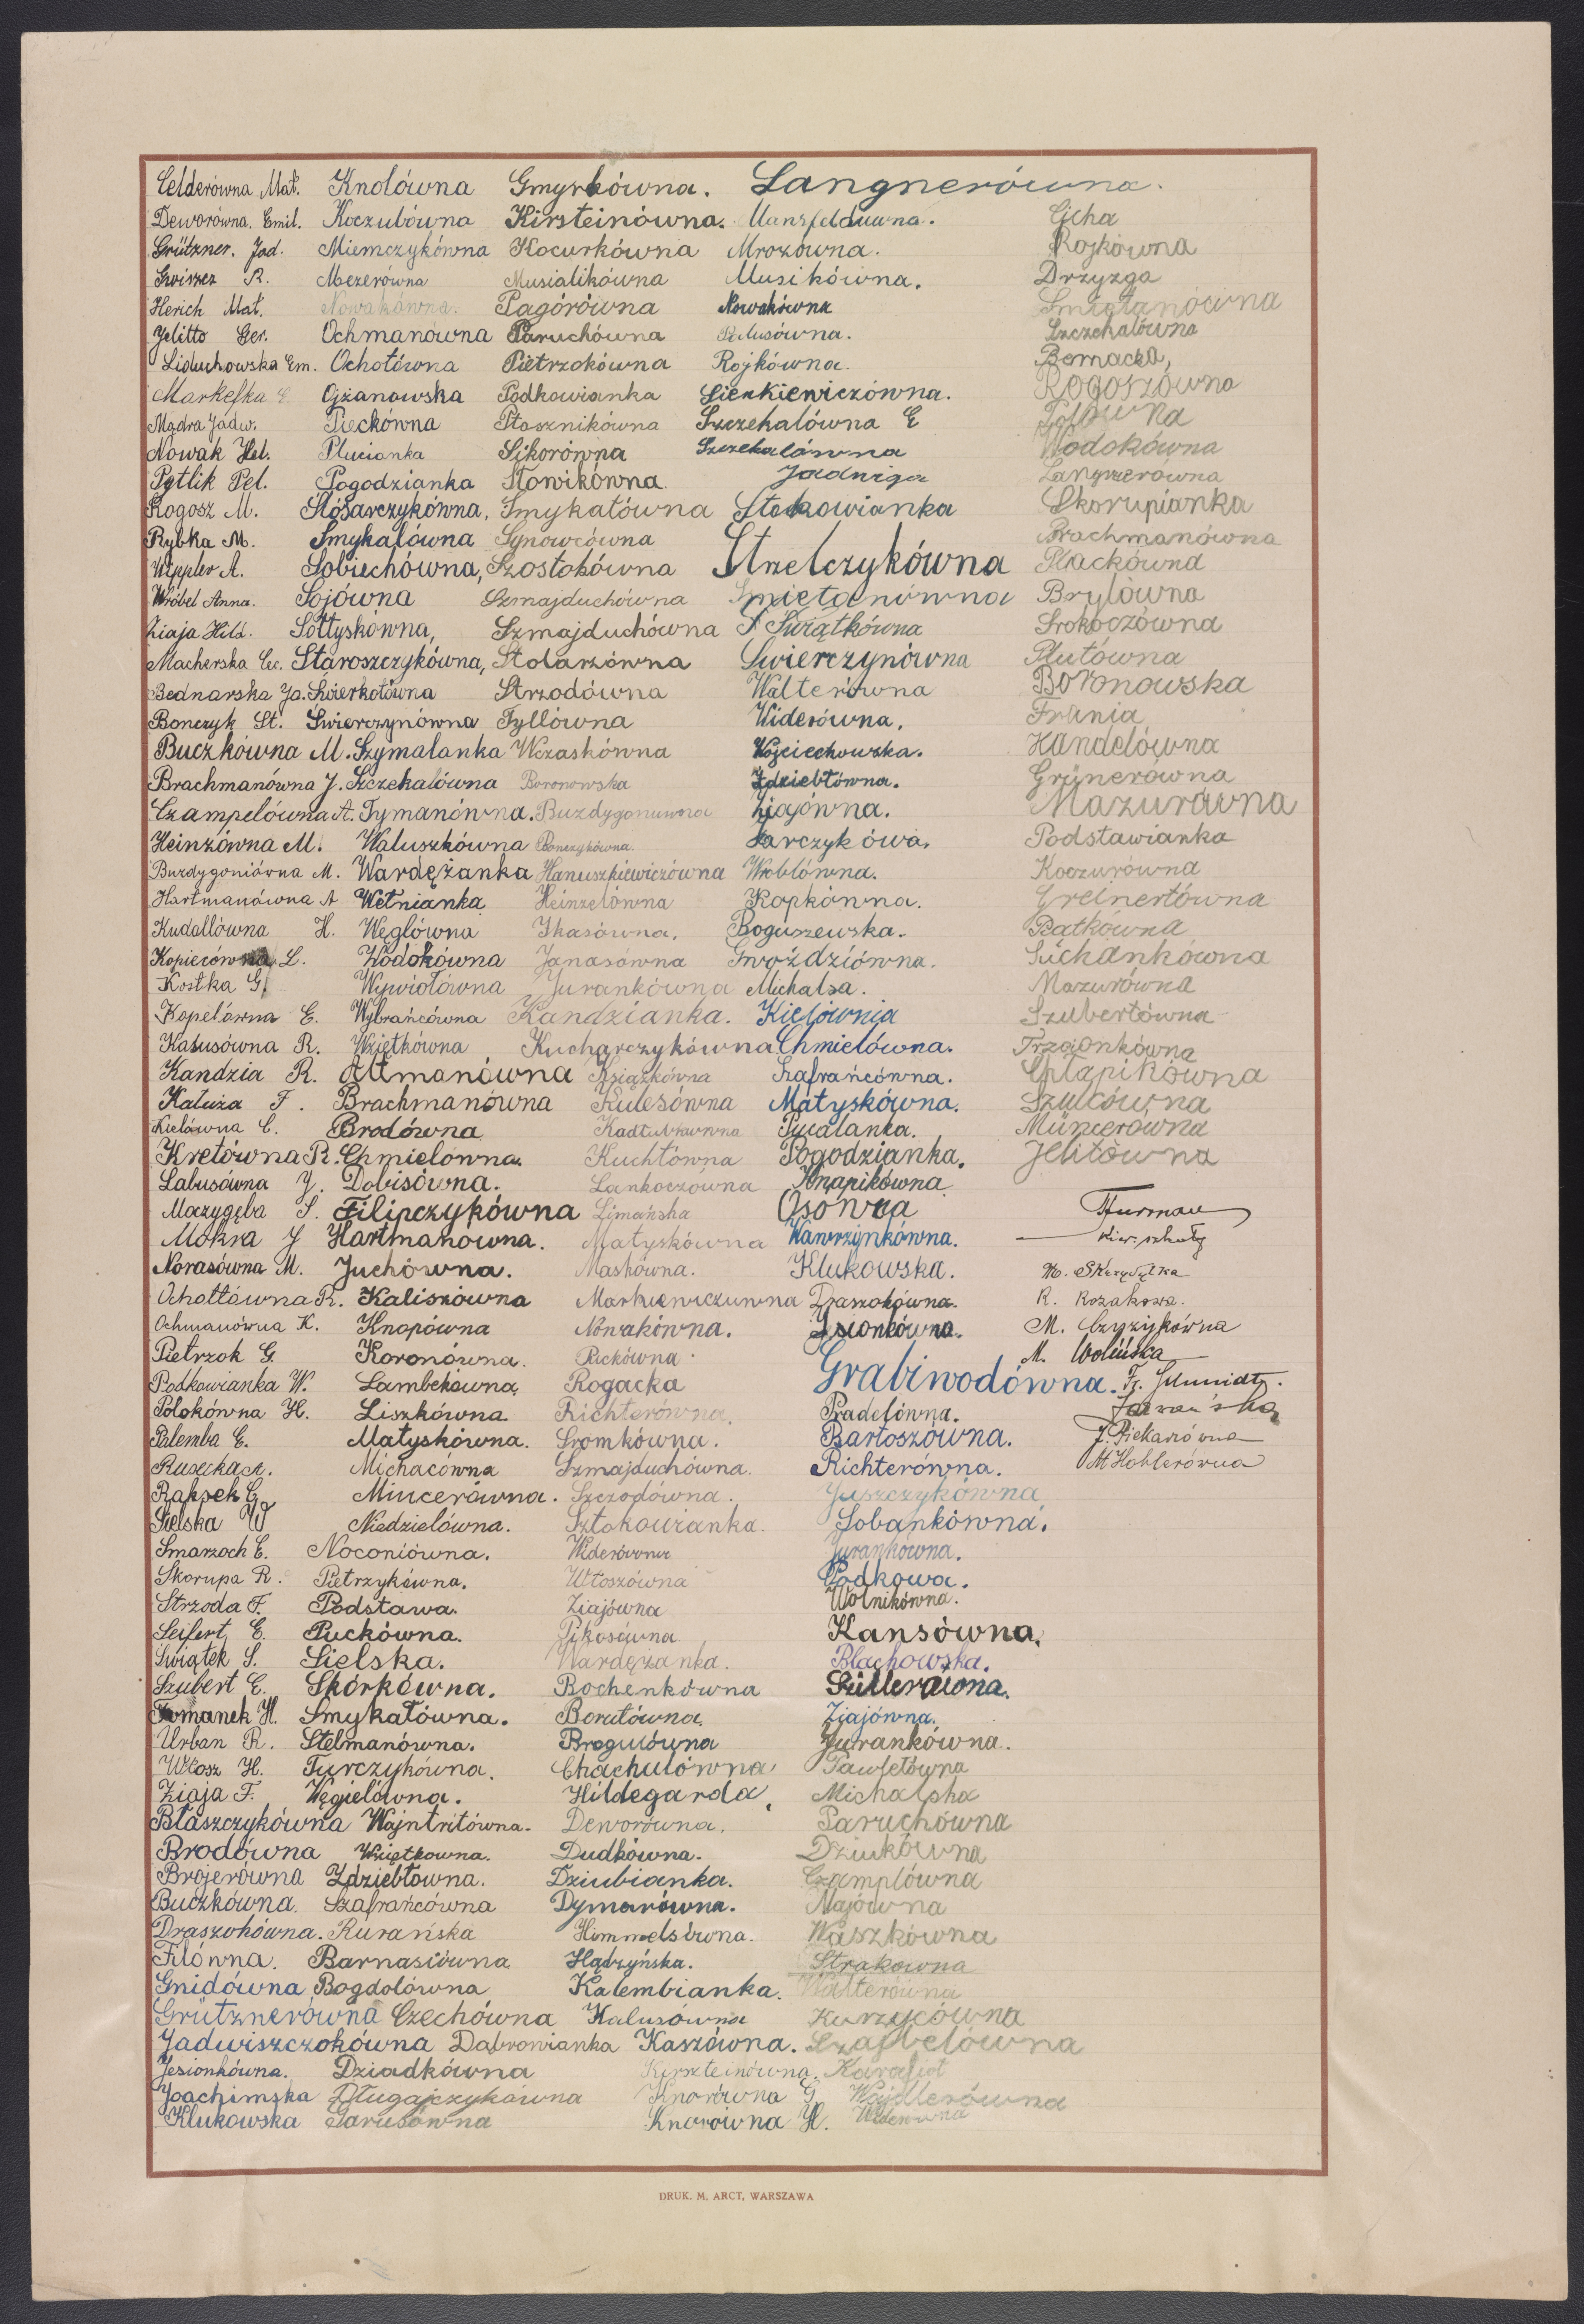 Celderówna Mat. Knolówna Gmyrkówna. Langnerówna.
Deworówna. Emil. Koczubówna Kirsteinówna. Mansfeldówna. Cicha
Grützner. Jad. Miemczykówna Kocurkówna Mrozówna. Rojkówna
R. Mezerówna Musialikówna Musikówna. Drzyzga
Herich Mat. Nowakówna. Pagórówna Nowakówna Smiatanówna
Jelitto Ger. Ochmanówna Paruchówna Palusówna. Szczehalówna
Liduchowska Em. Ochotówna Pietrzokówna Rojkówna. Bernacka,
Markefka E. Ojzanowska Podkowianka Sienkiewiczówna. Rogoszówna
Mądra Jadw. Pieckówna Ptasznikówna Szczekalówna E
Nowak Hel. Plucianka Sikorówna Szczekalówna Wodokówna
Pytlik Pel. Pogodzianka Słowikówna. Jadwiga Langnerówna
Rogosz M. Slósarczykówna, Smykatówna Stokowianka Skorupianka
Rybka M. Smykałówna Synowcówna Brachmanówna
Wippler A. Sobiechówna, Szostokówna Strzelczykówna Plackówna
Wróbel Anna. Sojówna Szmajduchówna Smietanówna Brylówna
Ziaja Hild. Sołtyskówna, Szmajduchówna S Świątkówna Srokoczówna
Macherska Cec. Staroszczykówna, Stolarzówna Swierczynówna Plutówna
Bednarska Ja. Świerkotówna Strzodówna Walterówna Boronowska
Bonczyk St. Świerczynówna Tyllówna Widerówna. Frania
Buczkówna M. Szymalanka Wczaskówna Wojciechowska. Handelówna
Brachmanówna J. Szczekalówna Boronowska Zdziebłówna. Grünerówna
Czampelówna A. Tymanówna. Buzdygonuwna Ziajówna. Mazurówna
Heinzówna M. Waluszkówna Bonczykówna. Garczykówa. Podstawianka
Burdygoniówna M. Wardężanka Hanuszkiewiczówna Wróblówna. Koczurówna
Hartmanówna A Wetnianka Heinzelówna Kopkówna. Greinertówna
Kudallówna H. Węglówna Ikasówna. Boguszewska. Patkówna
Kopiecówna L. Wodokówna Janasówna Gwoździówna. Suchankówna
Kostka G. Wywiołówna Jurankówna Michalsa. Mazurówna
Kopelówna E. Wybrańcówna Kandzianka. Kielównia Szubertówna
Kalusówna R. Wziętkówna Kucharczykówna Chmielówna. Trzaonkówna
Kandzia R. Altmanówna Książkówna Szafrańcówna. Cplapikówna
Kaluża F. Brachmanówna Kulesówna Matyskówna. Szulcówna
Kielówna C. Brodówna Kadłubkówna Pucalanka. Müncerówna
Kretówna R. Chmielówna. Kuchtówna Pogodzianka. Jelitówna
Labusówna J. Dobisówna. Lankoczówna Knapikówna
Maczygęba S. Filipczykówna Limańska Osówna Furman
Mokra J Hartmanówna. Matyskówna Wawrzynkówna. Kier. szkoły
Norasówna M. Juchówna. Maskówna. Klukowska. M. Skrzydłka
Ochottówna R. Kaliszówna Markiewiczuwna Draszokówna. R. Kozakowa.
Ochmanówna K. Knopówna Nowakówna. Jsionkówna. M. Czyzykówna
Pietrzok G. Koronówna. Puckówna. M. Wolińska
Podkowianka W. Lambekówna, Rogacka Grabiwodówna. Fr. Schmidt.
Polokówna H. Liszkówna Richterówna. Pradelówna.
Palemba E. Matyskówna. Sromkówna. Bartoszówna. J. Piekarzówna
Rusecka A. Michacówna Szmajduchówna. Richterówna. M Hoblerówna
Rapsek G. Mincerówna. Szczodówna. Juszczykówna
Sielska W Niedzielówna. Sztokowianka. Sobankówna.
Smarzoch E. Noconiówna. Widerówna Jurankówna.
Skorupa R. Pietrzykówna. Włoszówna Podkowa.
Strzoda F. Podstawa. Ziajówna Wolnikówna.
Seifert E. Puckówna. Pikosówna Kansówna.
Świątek S. Sielska. Wardężanka. Blachowska.
Szubert E. Skórkówna. Bochenkówna Süllerówna.
Tomanek H. Smykałówna. Borutówna Ziajówna.
Urban R. Stelmanówna. Brogulówna Jurankówna.
Włosz H. Turczykówna. Chachulówna Pawletówna
Ziaja F. Węgielówna. Hildegarda, Michalska
Błaszczykówna Wajntritówna. Deworówna. Paruchówna
Brodówna Wziętkowna. Dudkówna. Dziukówna
Brojerówna Zdziebłówna. Dziubianka. Czamplówna
Buczkówna. Szafrańcówna Dymarówna. Majówna
Draszokówna. Kurańska Himmelsówna. Waszkówna
Filówna. Barnasiówna Hądzyńska. Strakowna
Gnidówna Bogdolówna Kalembianka. Walterówna
Grütznerówna Czechówna Kalusówna Kurzycówna
Jadwiszczokówna Dabrowianka Kaszówna. Szafbelówna
Jesionkówna. Dziadkówna Kirszteinówna. Karafiot
Joachimska Długajczykówna Knorówna G. Wajdlerówna
Klukowska Garusówna Knorówna H. Widerówna
DRUK. M. ARCT, WARSZAWA